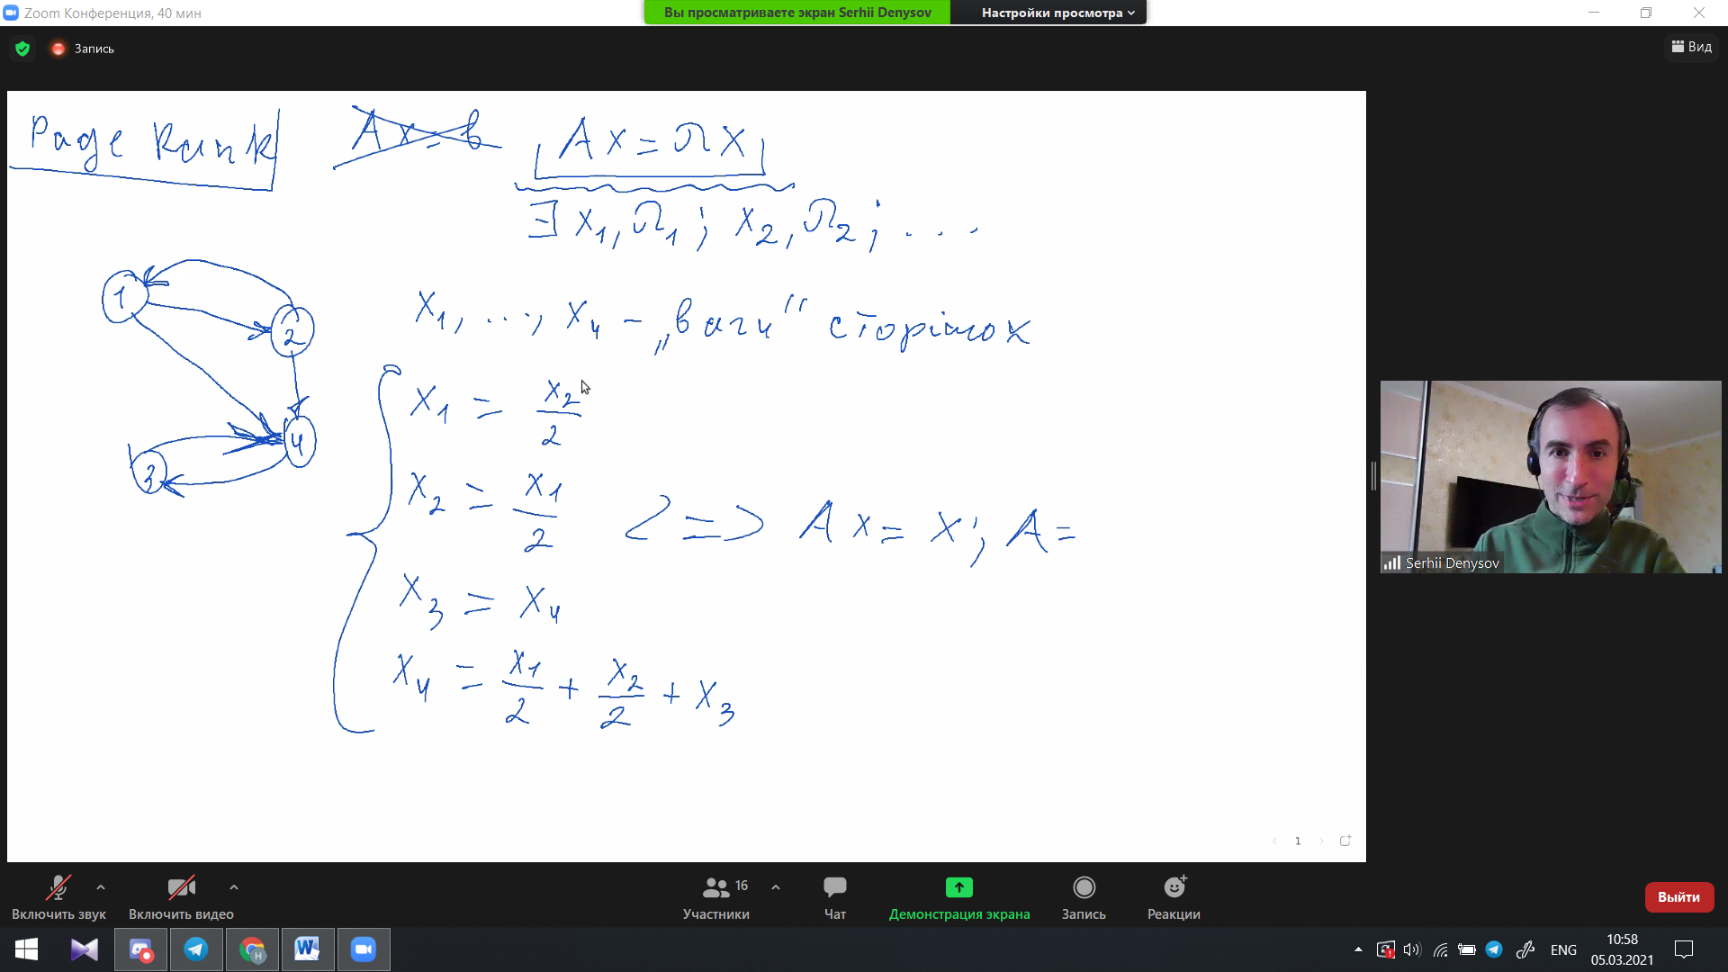 Zoom Конференция, 40 мин
Вы просматриваете экран Serhii Denysov
Настройки просмотра
Запись
Вид
Page Rank
Ax = b
Ax = λx
∃ x₁, λ₁; x₂, λ₂; ...
1
2
4
3
x₁, ..., x₄ - „ваги“ сторінок
x₁ = x₂/2
x₂ = x₁/2 <=> Ax = x; A =
x₃ = x₄
x₄ = x₁/2 + x₂/2 + x₃
Serhii Denysov
1
16
Включить звук
Включить видео
Участники
Чат
Демонстрация экрана
Запись
Реакции
Выйти
ENG
10:58
05.03.2021